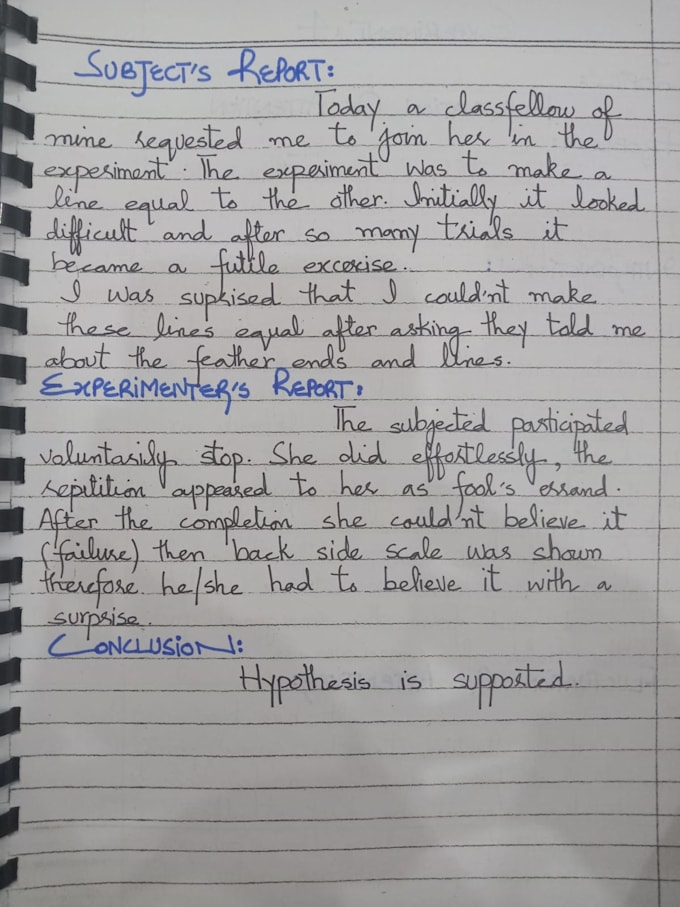 SUBJECT'S REPORT:
Today a classfellow of
mine requested me to join her in the
experiment. The experiment was to make a
line equal to the other. Initially it looked
difficult and after so many trials it
became a futile excercise.
I was suphised that I could'nt make
these lines equal after asking they told me
about the feather ends and lines.
EXPERIMENTER'S REPORT:
The subjected participated
voluntarily stop. She did effortlessly, the
repitition appeared to her as fool's errand.
After the completion she could'nt believe it
(failure) then back side scale was shown
therefore he/she had to believe it with a
surprise.
CONCLUSION:
Hypothesis is supported.